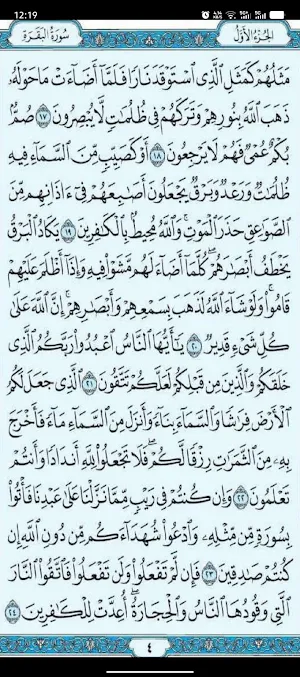 12:19
الجزء الأول سورة البقرة
مَثَلُهُمْ كَمَثَلِ ٱلَّذِى ٱسْتَوْقَدَ نَارًا فَلَمَّآ أَضَآءَتْ مَا حَوْلَهُۥ
ذَهَبَ ٱللَّهُ بِنُورِهِمْ وَتَرَكَهُمْ فِى ظُلُمَٰتٍ لَّا يُبْصِرُونَ ١٧ صُمٌّۢ
بُكْمٌ عُمْىٌ فَهُمْ لَا يَرْجِعُونَ ١٨ أَوْ كَصَيِّبٍ مِّنَ ٱلسَّمَآءِ فِيهِ
ظُلُمَٰتٌ وَرَعْدٌ وَبَرْقٌ يَجْعَلُونَ أَصَٰبِعَهُمْ فِىٓ ءَاذَانِهِم مِّنَ
ٱلصَّوَٰعِقِ حَذَرَ ٱلْمَوْتِ ۚ وَٱللَّهُ مُحِيطٌۢ بِٱلْكَٰفِرِينَ ١٩ يَكَادُ ٱلْبَرْقُ
يَخْطَفُ أَبْصَٰرَهُمْ ۖ كُلَّمَآ أَضَآءَ لَهُم مَّشَوْا۟ فِيهِ وَإِذَآ أَظْلَمَ عَلَيْهِمْ
قَامُوا۟ ۚ وَلَوْ شَآءَ ٱللَّهُ لَذَهَبَ بِسَمْعِهِمْ وَأَبْصَٰرِهِمْ ۚ إِنَّ ٱللَّهَ عَلَىٰ
كُلِّ شَىْءٍ قَدِيرٌ ٢٠ يَٰٓأَيُّهَا ٱلنَّاسُ ٱعْبُدُوا۟ رَبَّكُمُ ٱلَّذِى
خَلَقَكُمْ وَٱلَّذِينَ مِن قَبْلِكُمْ لَعَلَّكُمْ تَتَّقُونَ ٢١ ٱلَّذِى جَعَلَ لَكُمُ
ٱلْأَرْضَ فِرَٰشًا وَٱلسَّمَآءَ بِنَآءً وَأَنزَلَ مِنَ ٱلسَّمَآءِ مَآءً فَأَخْرَجَ
بِهِۦ مِنَ ٱلثَّمَرَٰتِ رِزْقًا لَّكُمْ ۖ فَلَا تَجْعَلُوا۟ لِلَّهِ أَندَادًا وَأَنتُمْ
تَعْلَمُونَ ٢٢ وَإِن كُنتُمْ فِى رَيْبٍ مِّمَّا نَزَّلْنَا عَلَىٰ عَبْدِنَا فَأْتُوا۟
بِسُورَةٍ مِّن مِّثْلِهِۦ وَٱدْعُوا۟ شُهَدَآءَكُم مِّن دُونِ ٱللَّهِ إِن
كُنتُمْ صَٰدِقِينَ ٢٣ فَإِن لَّمْ تَفْعَلُوا۟ وَلَن تَفْعَلُوا۟ فَٱتَّقُوا۟ ٱلنَّارَ
ٱلَّتِى وَقُودُهَا ٱلنَّاسُ وَٱلْحِجَارَةُ ۖ أُعِدَّتْ لِلْكَٰفِرِينَ ٢٤
٤